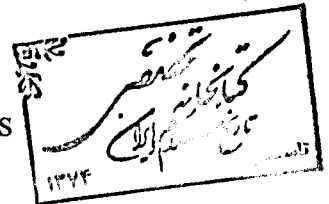 S
کتابخانه تخصصی
تاریخ اسلام ایران
۱۳۷۴